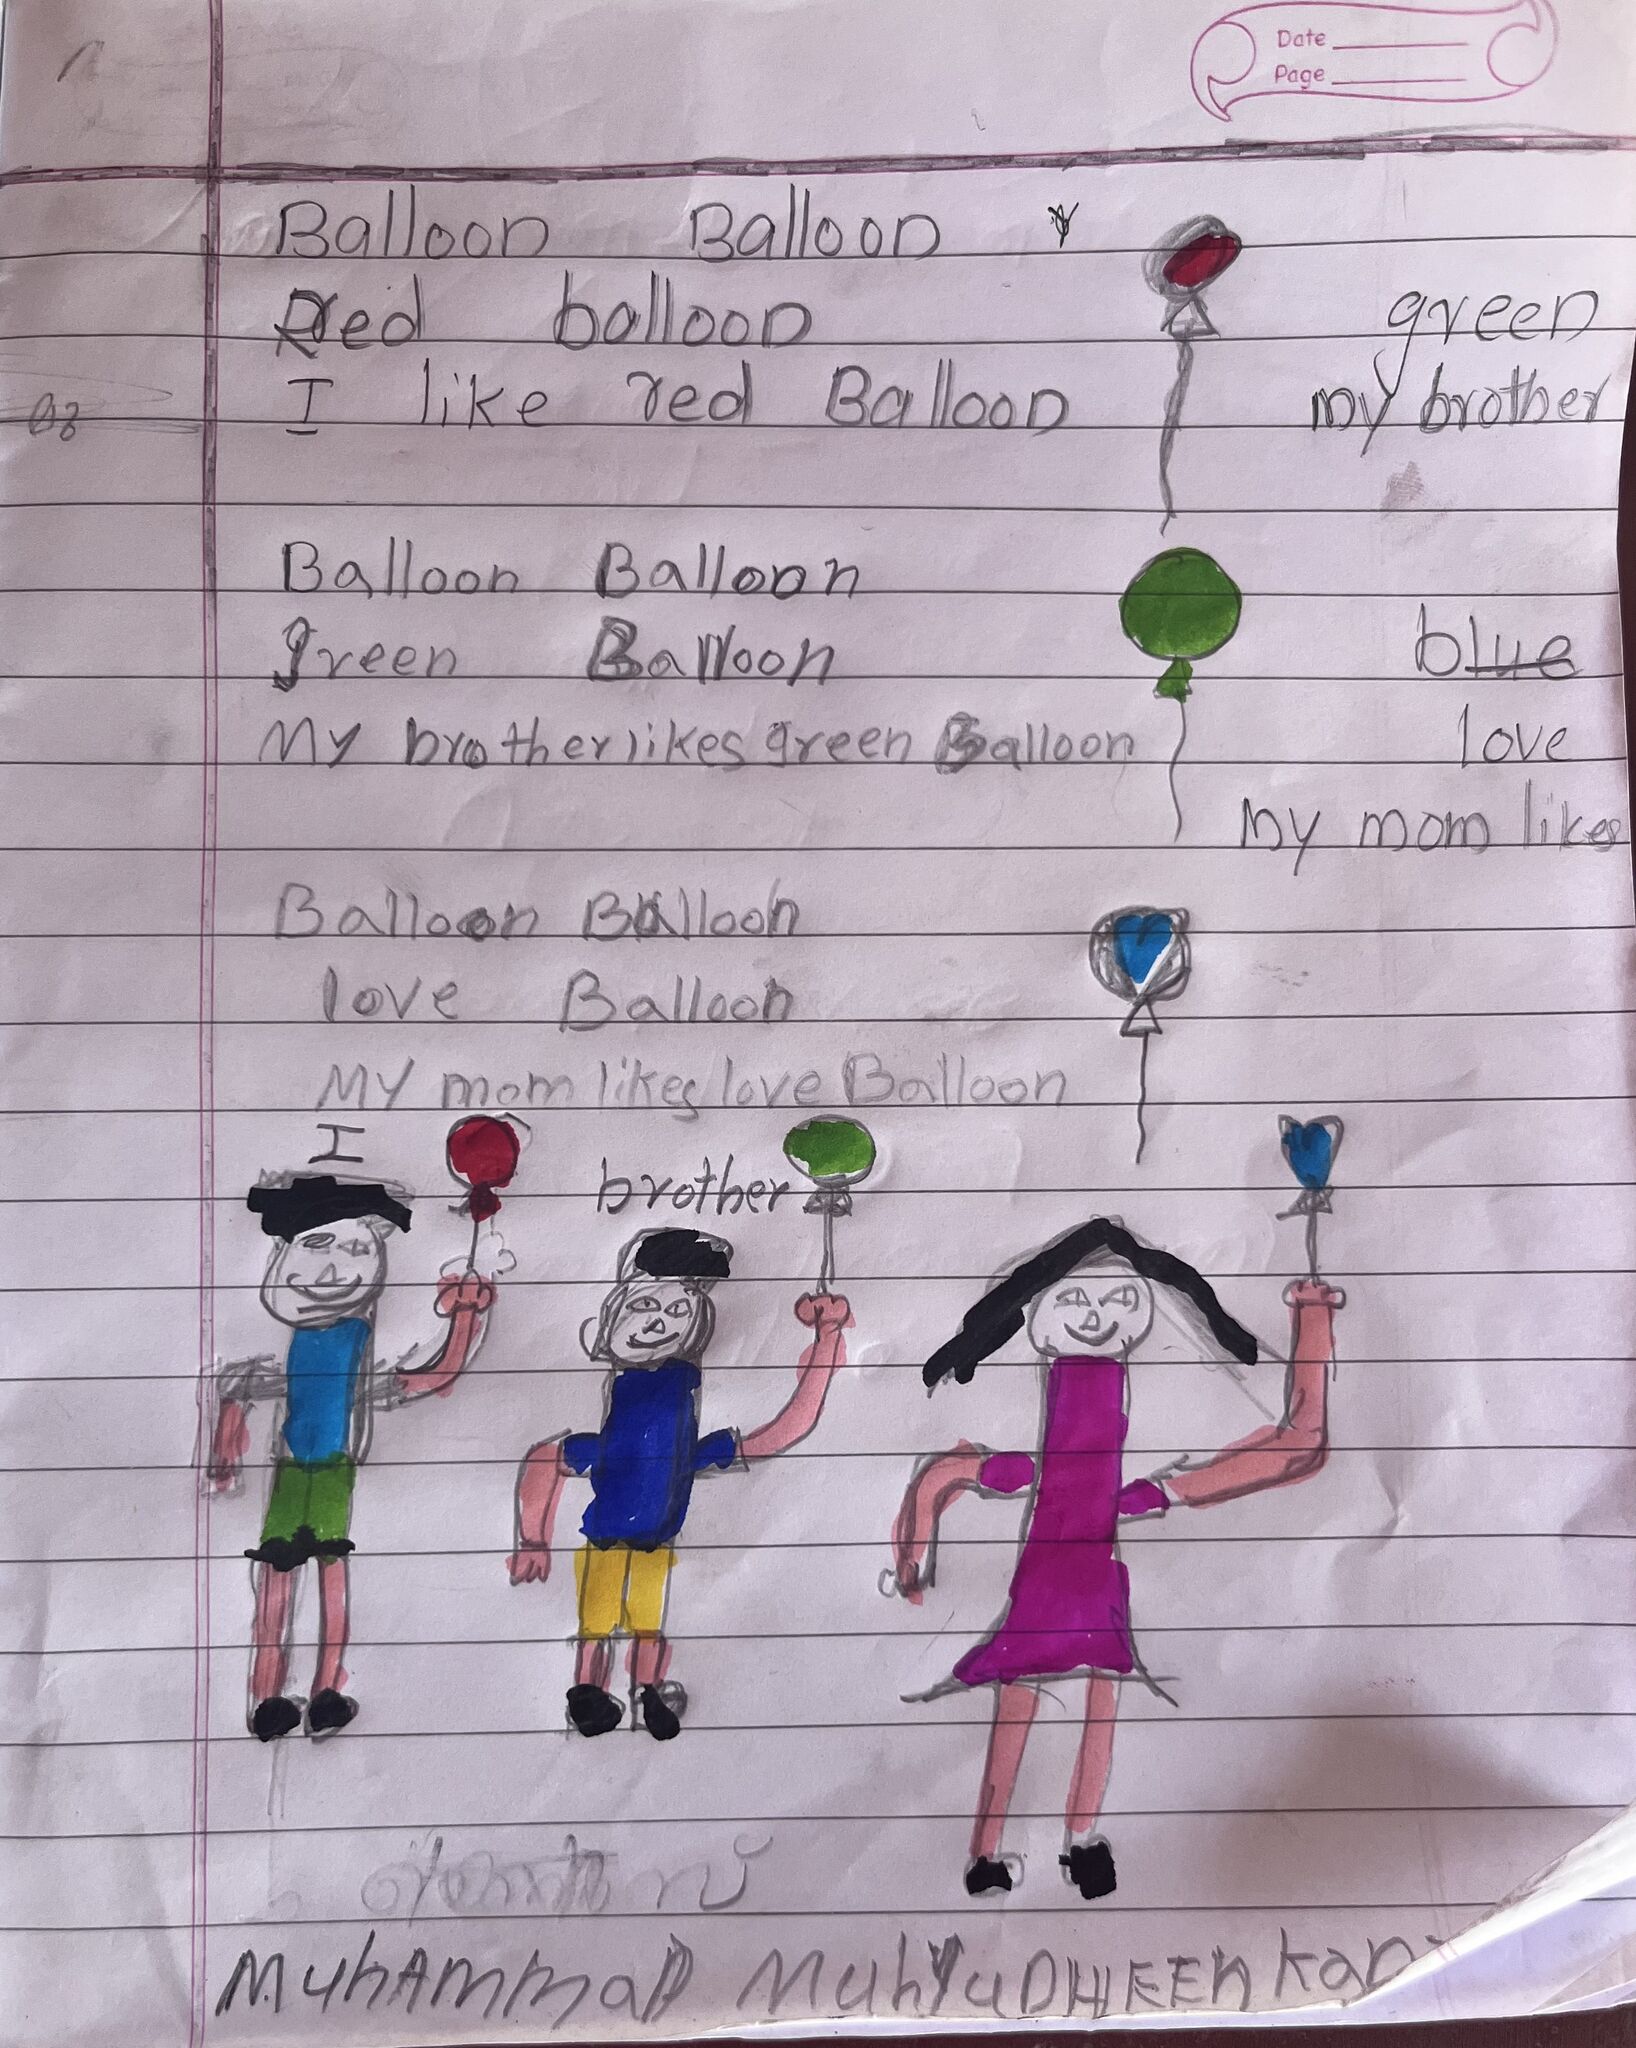 Date
Page
Balloon Balloon
Red balloon
I like red Balloon
green
my brother
03
Balloon Balloon
green Balloon
My brother likes green Balloon
blue
love
my mom likes
Balloon Balloon
love Balloon
My mom likes love Balloon
I
brother
MuhAmmaD MuhYuDHEEn Kan